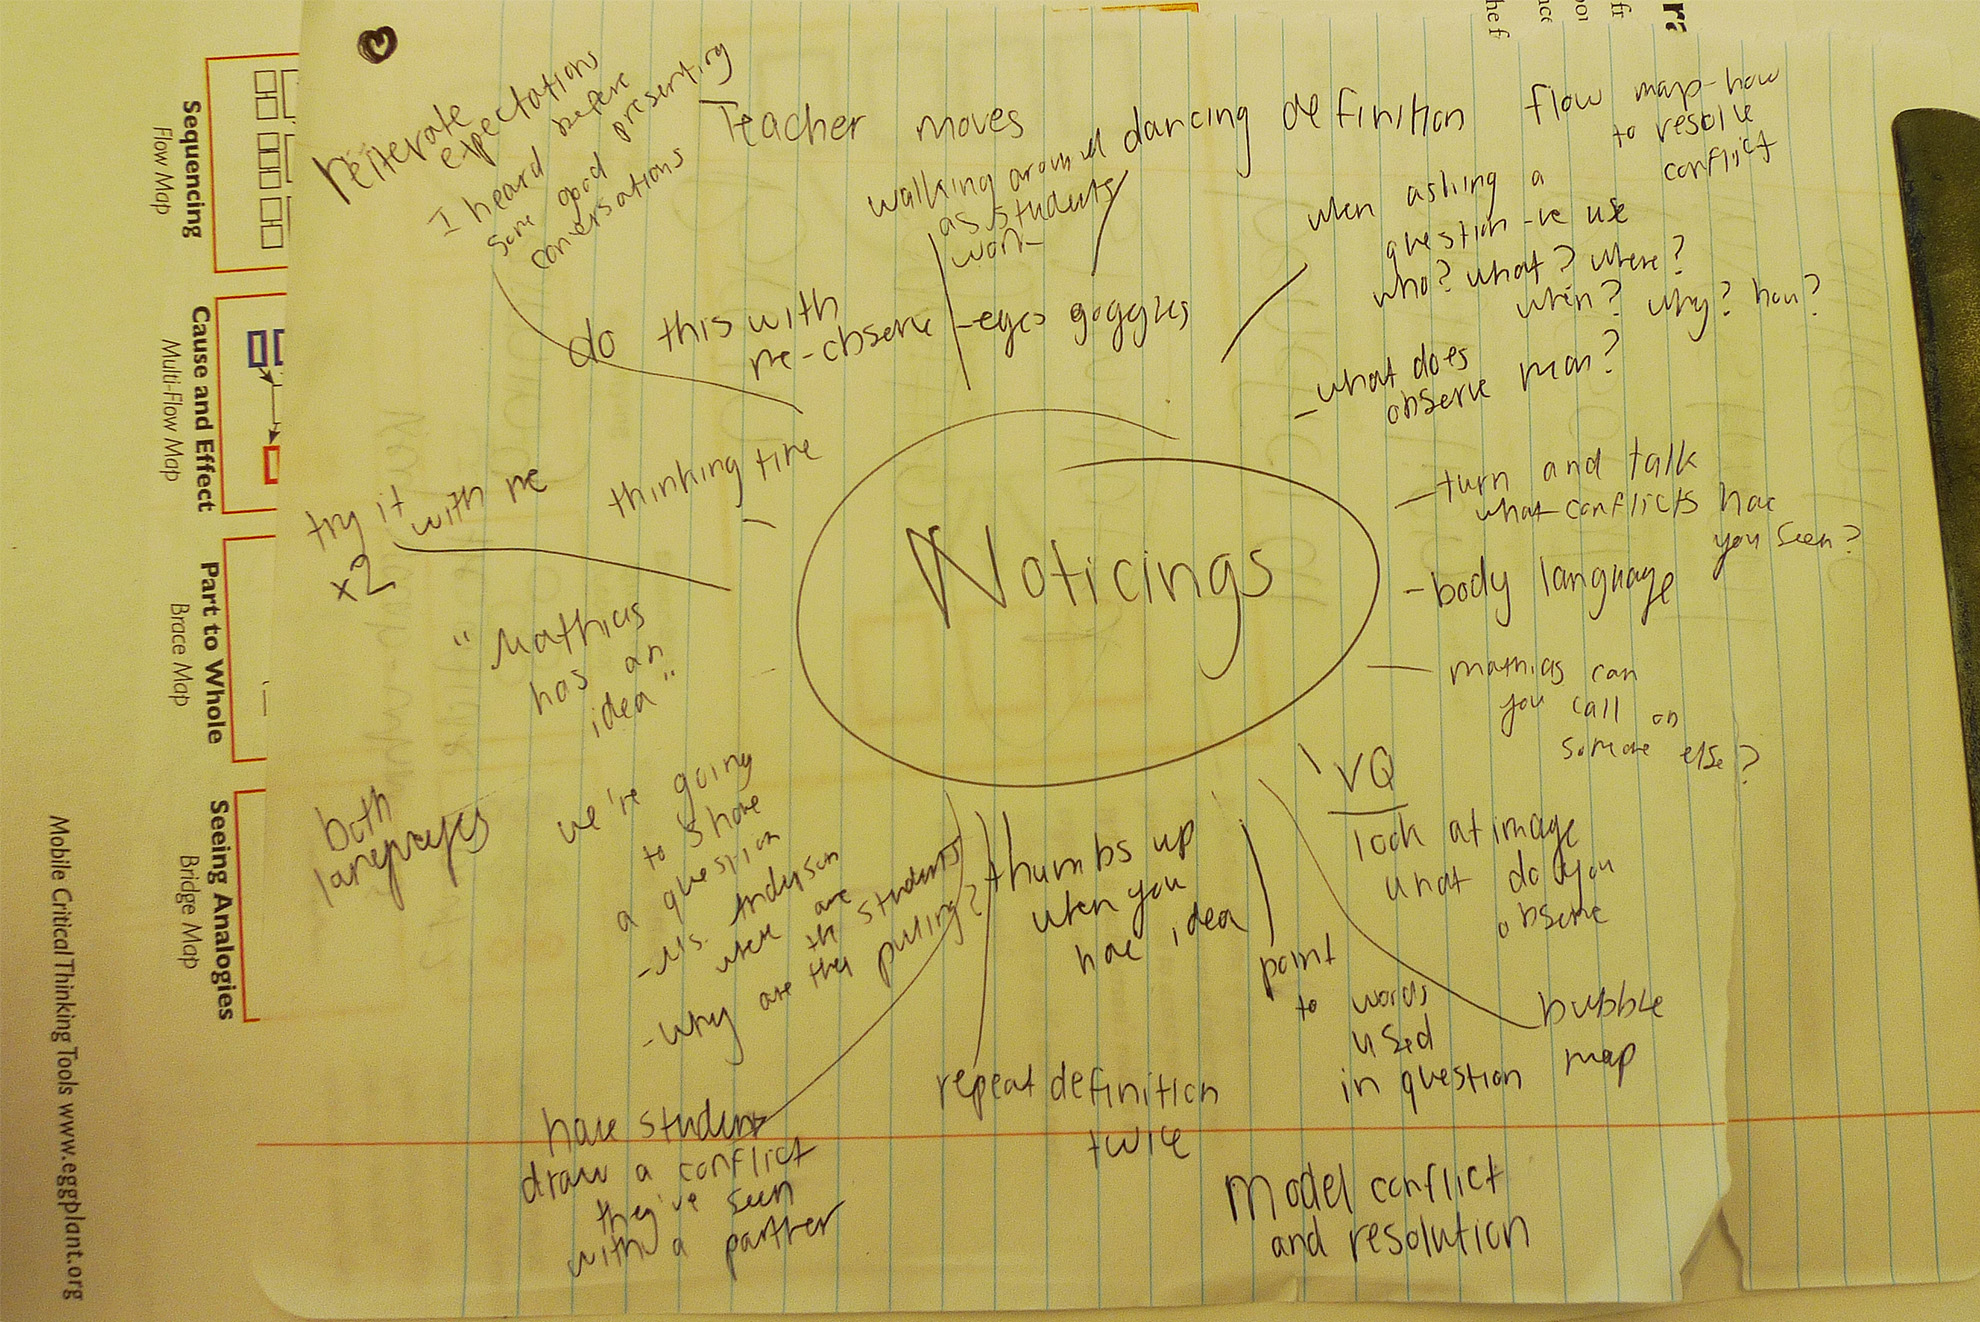 reiterate
expectations
before
presenting
I heard
some good
conversations
Teacher moves
walking around
as students
work
dancing definition
flow map - how
to resolve
conflict
when asking a
question - we use
who? what? where?
when? why? how?
do this with
me - observe - eyes goggles
- what does
observe mean?
- turn and talk
what conflicts have
you seen?
- body language
- mathias can
you call on
someone else?
thinking time
try it with me
x2
"Mathias
has an
idea"
Noticings
both
languages
we're going
to share
a question
- Ms. Anderson
where are
the students
- why are they pulling?
thumbs up
when you
have idea
VQ
look at image
what do you
observe
point
to words
used
in question
bubble
map
repeat definition
twice
have students
draw a conflict
they've seen
with a partner
Model conflict
and resolution
Sequencing
Flow Map
Cause and Effect
Multi-Flow Map
Part to Whole
Brace Map
Seeing Analogies
Bridge Map
Mobile Critical Thinking Tools www.eggplant.org